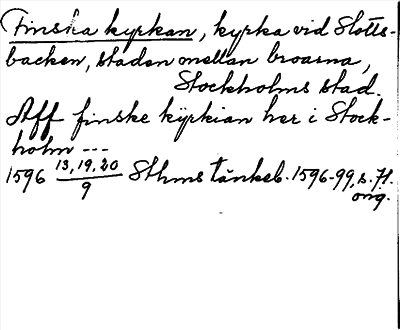 Finska kyrkan, kyrka vid Slotts-
backen, staden mellan broarna,
Stockholms stad.
Aff finske kÿrkian her i Stock-
holm ---
1596 13,19,20/9 Sthms tänkeb. 1596-99, s. 71.
orig.